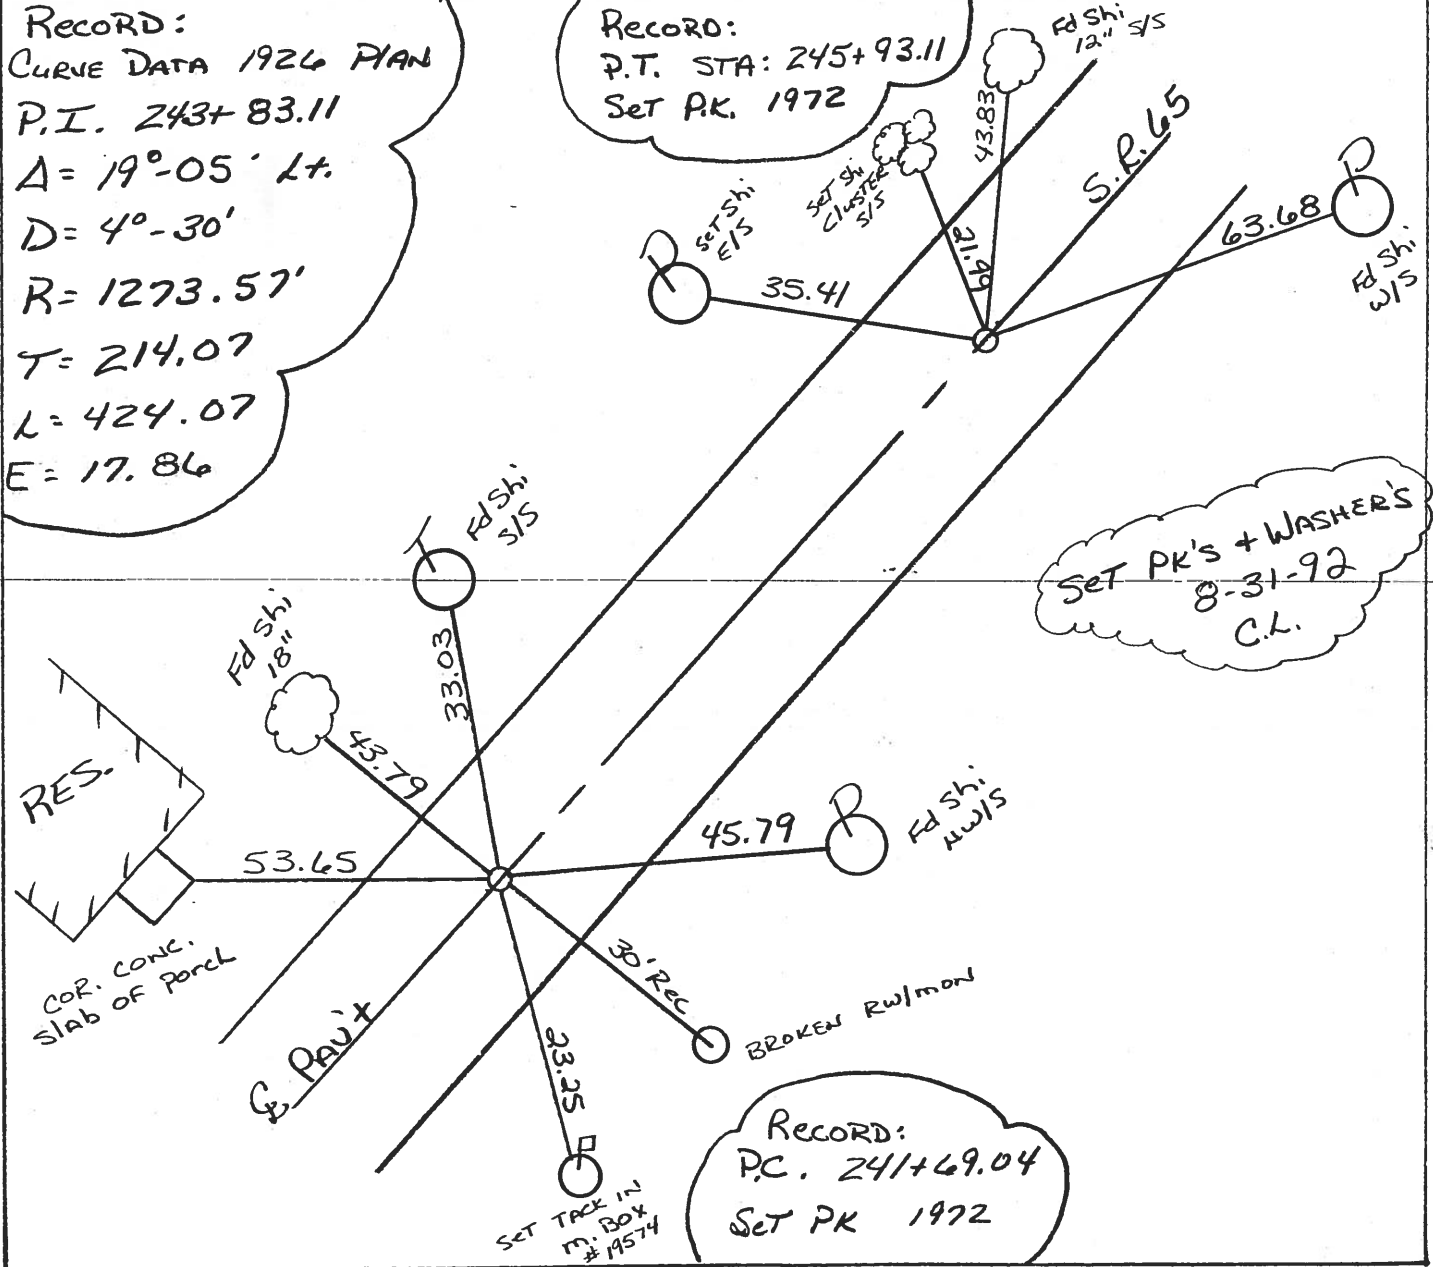 RECORD:
CURVE DATA 1926 PLAN
P.I. 243+83.11
Δ= 19°-05' Lt.
D= 4°-30'
R= 1273.57'
T= 214.07
L= 424.07
E= 17.86
RECORD:
P.T. STA: 245+93.11
SET P.K. 1972
Fd Shi
12" S/S
43.83
S.R. 65
SET Shi
CLUSTER
S/S
21.96
SET Shi
E/S
35.41
63.68
Fd Shi
W/S
SET PK'S + WASHER'S
8-31-92
C.L.
Fd Shi
S/S
33.03
Fd Shi
18"
43.79
RES.
53.65
45.79
Fd Shi
NW/S
COR. CONC.
slab OF Porch
℄ PAV't
30' Rec
BROKEN RW/MON
23.25
SET TACK IN
M. BOX
# 19574
RECORD:
P.C. 241+69.04
SET PK 1972